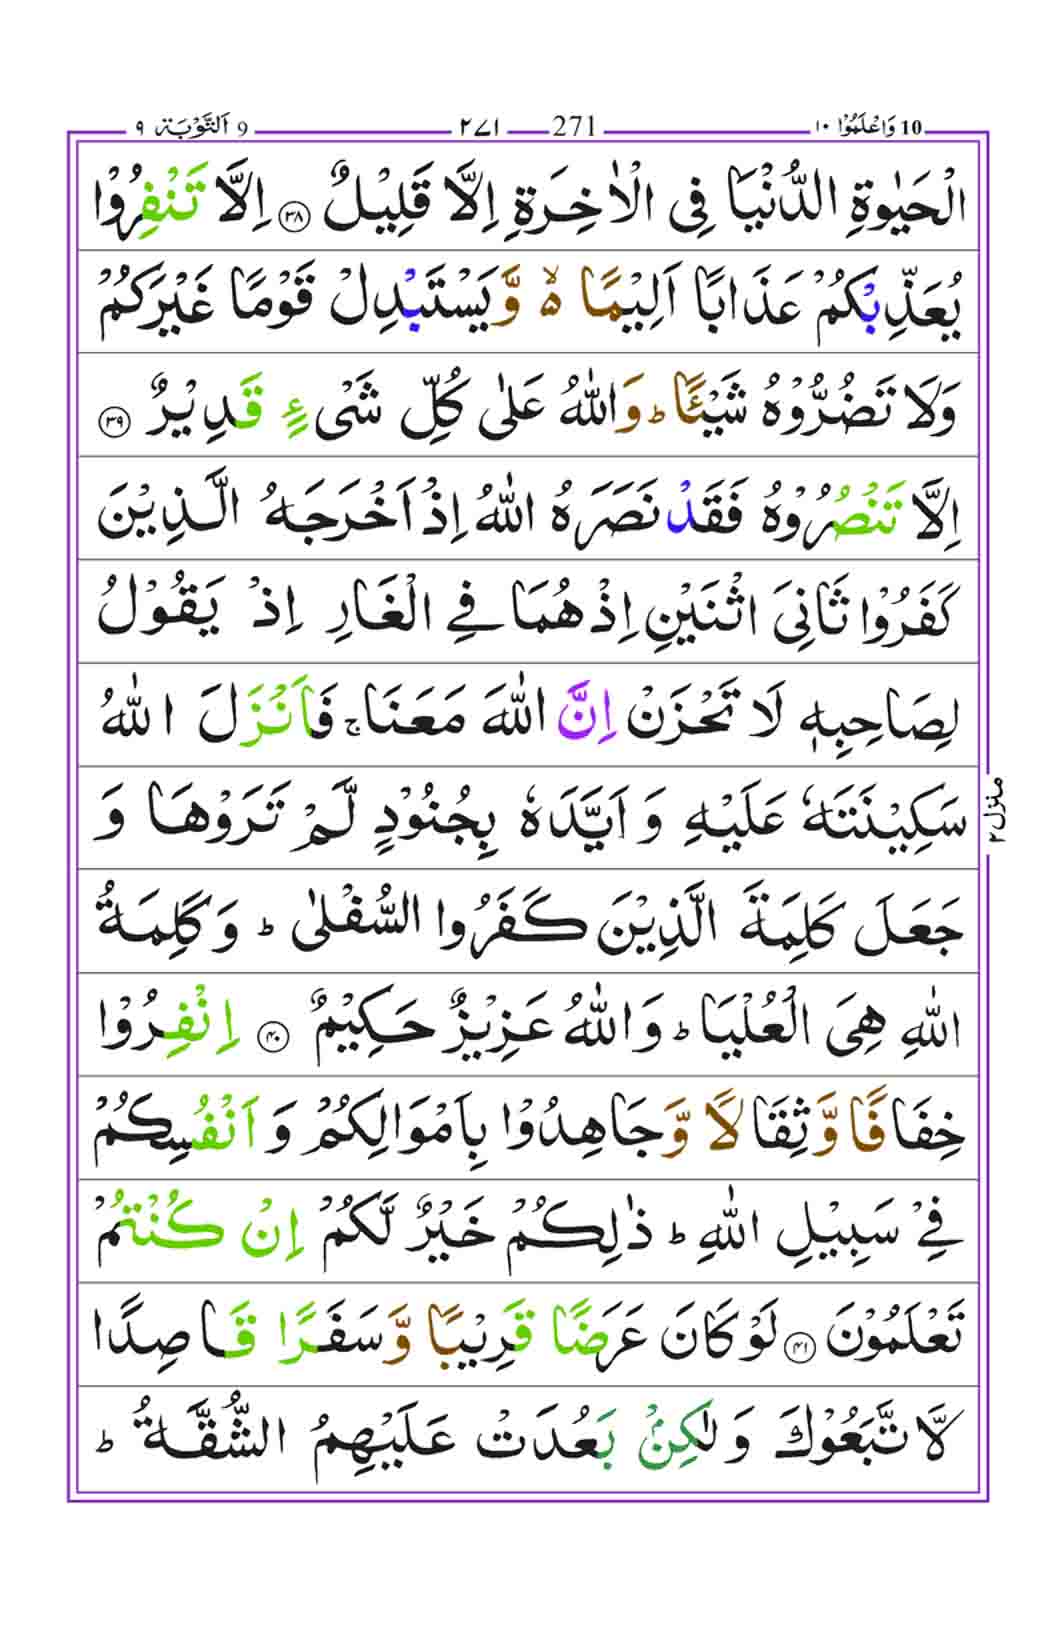 وَاعْلَمُوْۤا ١٠ 10 271 ٢٧١ 9 اَلتَّوْبَة ٩
الْحَيٰوةِ الدُّنْيَا فِى الْاٰخِرَةِ اِلَّا قَلِيْلٌ ﴿٣٨﴾ اِلَّا تَنْفِرُوْا
يُعَذِّبْكُمْ عَذَابًا اَلِيْمًا ۙ۬ وَّيَسْتَبْدِلْ قَوْمًا غَيْرَكُمْ
وَلَا تَضُرُّوْهُ شَيْـًٔا ؕ وَاللّٰهُ عَلٰى كُلِّ شَىْءٍ قَدِيْرٌ ﴿٣٩﴾
اِلَّا تَنْصُرُوْهُ فَقَدْ نَصَرَهُ اللّٰهُ اِذْ اَخْرَجَهُ الَّذِيْنَ
كَفَرُوْا ثَانِىَ اثْنَيْنِ اِذْ هُمَا فِى الْغَارِ اِذْ يَقُوْلُ
لِصَاحِبِهٖ لَا تَحْزَنْ اِنَّ اللّٰهَ مَعَنَا ۚ فَاَنْزَلَ اللّٰهُ
سَكِيْنَتَهٗ عَلَيْهِ وَ اَيَّدَهٗ بِجُنُوْدٍ لَّمْ تَرَوْهَا وَ
جَعَلَ كَلِمَةَ الَّذِيْنَ كَفَرُوا السُّفْلٰى ؕ وَكَلِمَةُ
اللّٰهِ هِىَ الْعُلْيَا ؕ وَاللّٰهُ عَزِيْزٌ حَكِيْمٌ ﴿٤٠﴾ اِنْفِرُوْا
خِفَافًا وَّ ثِقَالًا وَّ جَاهِدُوْا بِاَمْوَالِكُمْ وَ اَنْفُسِكُمْ
فِىْ سَبِيْلِ اللّٰهِ ؕ ذٰلِكُمْ خَيْرٌ لَّكُمْ اِنْ كُنْتُمْ
تَعْلَمُوْنَ ﴿٤١﴾ لَوْ كَانَ عَرَضًا قَرِيْبًا وَّ سَفَرًا قَاصِدًا
لَّا تَّبَعُوْكَ وَلٰكِنْۢ بَعُدَتْ عَلَيْهِمُ الشُّقَّةُ ؕ
منزل ٢